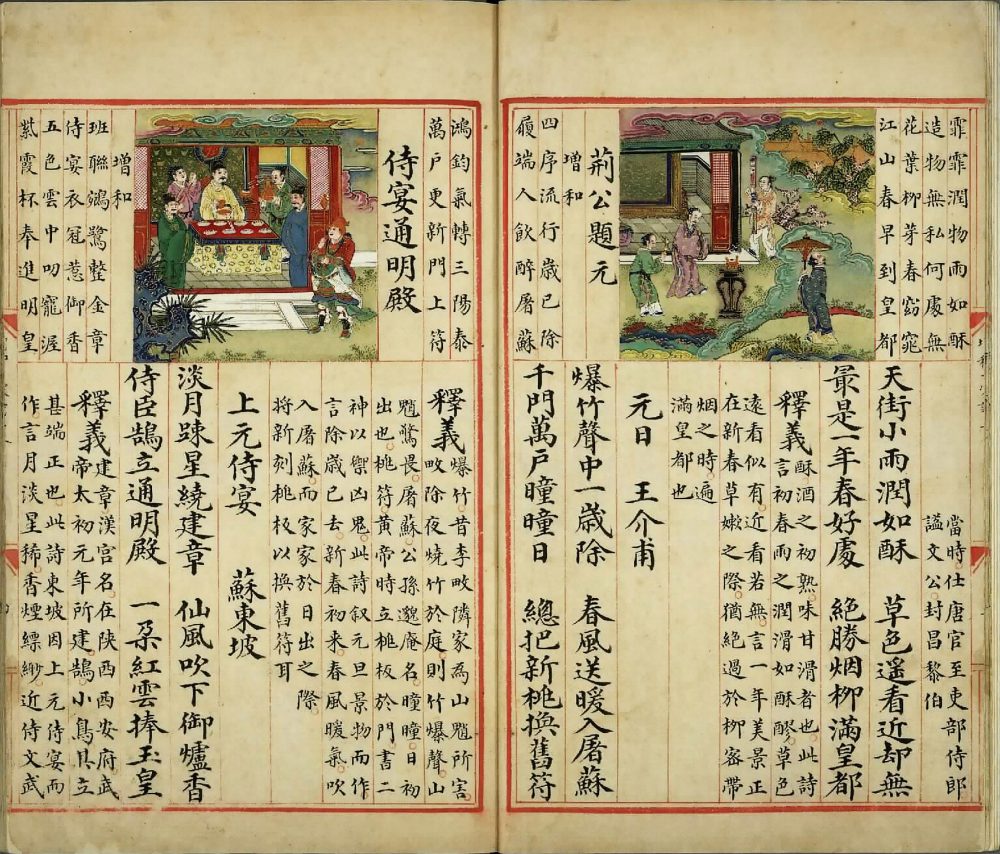 霏霏潤物雨如酥
造物無私何處無
花葉柳芽春窈窕
江山春早到皇都
荊公題元
增和
四序流行歲已除
履端人飲醉屠蘇
當時仕唐官至吏部侍郎
謚文公封昌黎伯
天街小雨潤如酥 草色遙看近却無
最是一年春好處 絕勝烟柳滿皇都
釋義 酥酒之初熟味甘滑者也此詩
言初春雨之潤滑如酥醪草色
遠看似有近看若無言一年美景正
在新春草嫩之際猶絕過於柳密帶
烟之時遍
滿皇都也
元日 王介甫
爆竹聲中一歲除 春風送暖入屠蘇
千門萬戶曈曈日 總把新桃換舊符
鴻鈞氣轉三陽泰
萬戶更新門上符
侍宴通明殿
增和
班聯鵷鷺整金章
侍宴衣冠惹御香
五色雲中叨寵渥
紫霞杯奉進明皇
釋義 爆竹昔李畋隣家為山魈所害
畋除夜燒竹於庭則竹爆聲山
魈驚畏屠蘇公孫邈庵名曈曈日初
出也桃符黃帝時立桃板於門書二
神以禦凶鬼此詩叙元旦景物而作
言除歲已去新春初来春風暖氣吹
入屠蘇而家家於日出之際
將新刻桃板以換舊符耳
上元侍宴 蘇東坡
淡月踈星繞建章 仙風吹下御爐香
侍臣鵠立通明殿 一朶紅雲捧玉皇
釋義 建章漢宮名在陝西西安府武
帝太初元年所建鵠小鳥具立
甚端正也此詩東坡因上元侍宴而
作言月淡星稀香煙縹緲近侍文武